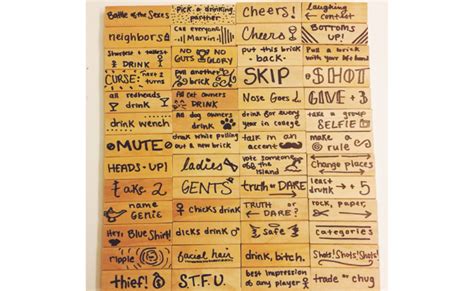 Battle of the Sexes
Pick a drinking
partner
Cheers!
laughing
contest
neighbors
Call everyone
Cheers
BOTTOMS
UP!
Shortest + tallest
DRINK
NO NO
GUTS GLORY
put this brick
back.
Pull a brick
with your left hand
CURSE: next 3
turns
pull another
brick
SKIP
SHOT
all redheads
drink
All cat owners
DRINK
Nose Goes
GIVE 3
drink wench
All dog owners
drink
drink for every
year in college
take a group
SELFIE
MUTE
drink while pulling
out a new brick
talk in an
accent
make a
rule
HEADS-UP!
ladies
vote someone
off the
island
Change places
take 2
GENTS
truth or DARE
least
drunk 5
name
GENIE
chicks drink
TRUTH or
DARE?
rock, paper,
Hey, Blue Shirt!
dicks drink
safe
categories
ripple
facial hair
drink, bitch.
Shots! Shots! Shots!
thief!
S.T.F.U.
best impression
of any player
trade or chug